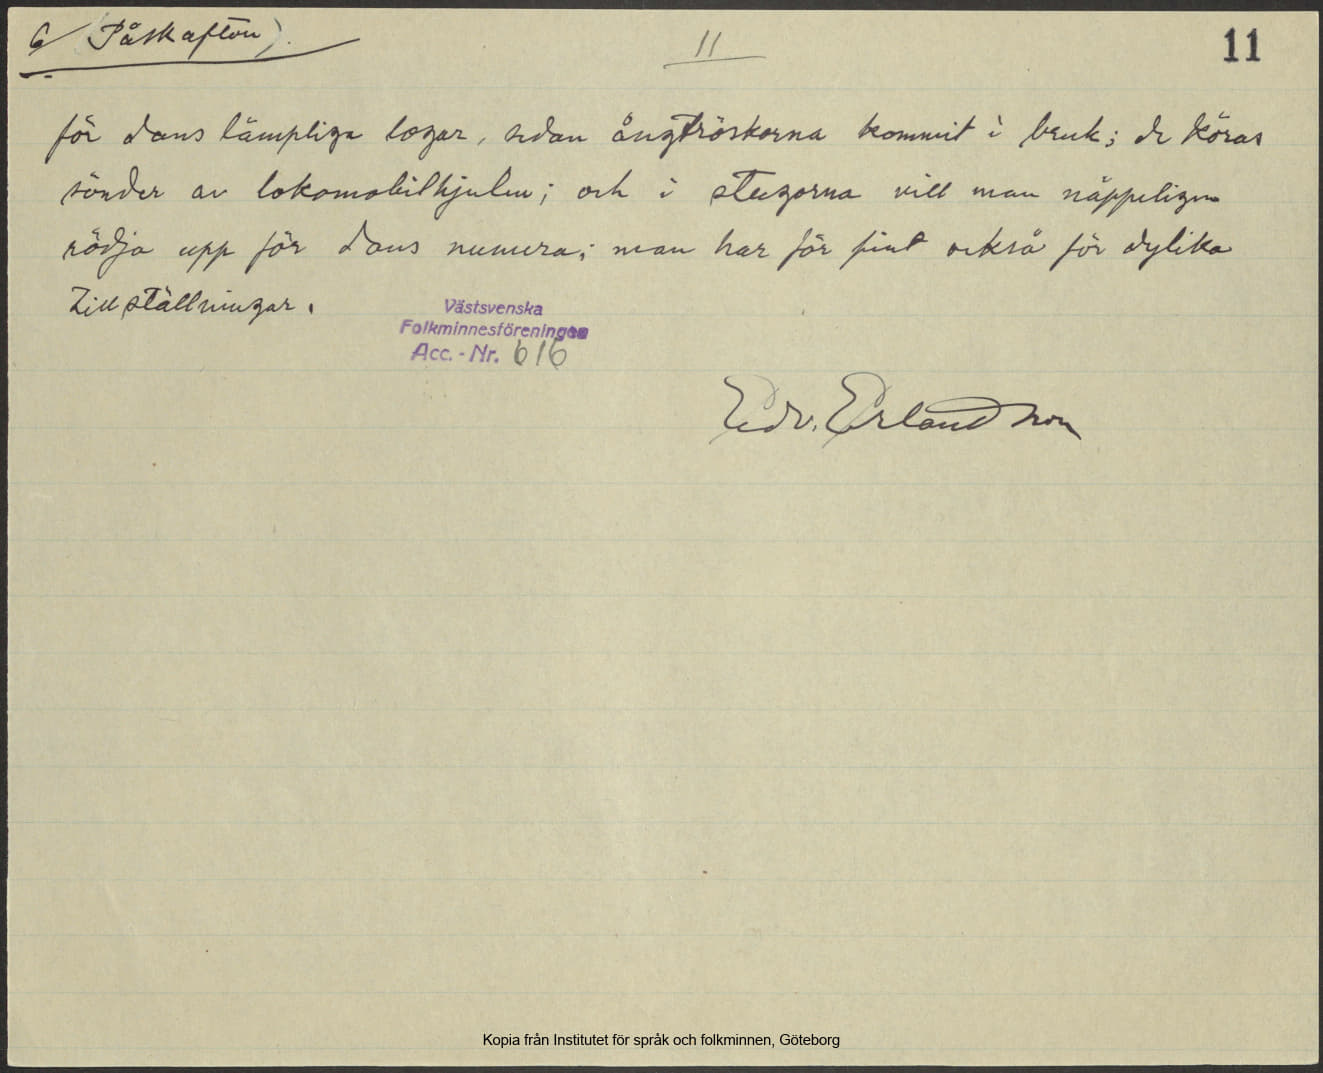 6/ (Påskafton).
11
11
för dans lämpliga logar, sedan ångtröskorna kommit i bruk; de köras
sönder av lokomobilhjulen; och i stugorna vill man näppeligen
rödja upp för dans numera; man har för fint också för dylika
tillställningar.
Västsvenska
Folkminnesföreningen
Acc. - Nr. 616
Edv. Erlandson
Kopia från Institutet för språk och folkminnen, Göteborg